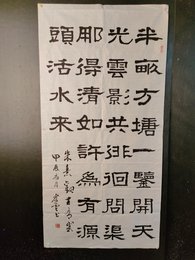 半畝方塘一鑒開天
光雲影共徘徊問渠
那得清如許為有源
頭活水来
朱熹觀書有感
甲辰